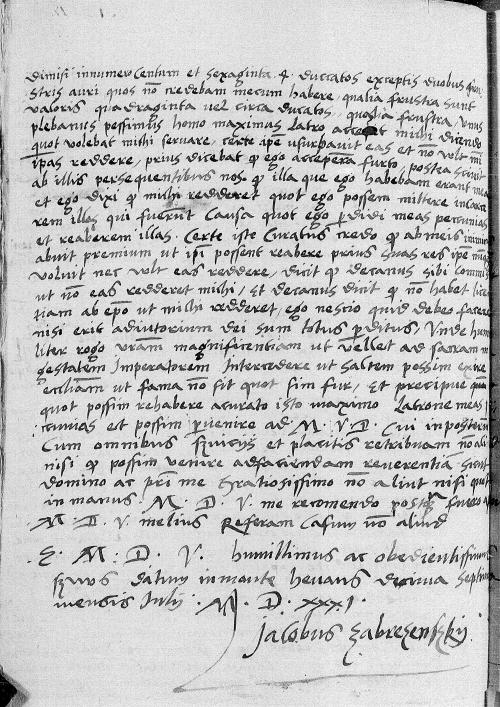 dimisi in numero Centum et sexaginta 4. ducatos exceptis duobus
stris auri quos nō credebam mecum habere, qualia frustra sunt
valoris quadraginta vel circa ducatos, qualia frustra, Unus
plebanus pessimus homo maximus latro michi dicendo
quot volebat mihi servare, certe ipe usurpavit eas et nō volt mi
ipas reddere, prius dicebat q ego acceperā furto, postea scivit
ab illis persequentibus nos q illa que ego habebam erant mea
et ego dixi q mihi redderet quot ego possem mittere in carce
rem illas qui fuerūt causa quot ego pdidi meas peccunias
et reaberem illas. Certe iste Curatus credo q ab meis inimi
abuit premium ut ipi possent reabere prius suas res ipe
voluit nec volt eas reddere, dicit q decanus sibi commi
ut nō eas redderet mihi, Et decanus dicit q nō habet lice
tiam ab epō ut mihi redderet, ego nescio quid debeo facere
nisi erit adiutorium dei sum totus pditus, Unde humi
liter rogo vrām magnificentiam ut vellet ad sacram m
gestatem Imperatorem Intercedere ut saltem possim
ut fama nō fit quot sim fur, Et precipue
quot possim rehabere acurato isto maximo Latrone meas p
cunias et possim pvenire ad M. V. D. Cui in posterum
Cum omnibus et placitis retribuam nō ali
nisi q possim venire ad faciendam reverentiā sicut
domino ac pri me gratiosissimo nō aliut nisi quot
in manus M. D. V. me recomendo postq fuero
M. D. V. melius Referam Casum nō aliud
E. M. D. V. humillimus ac obedientissimus
datum in monte decima septima
mensis Iulij M. D. XXXI.
Jacobus